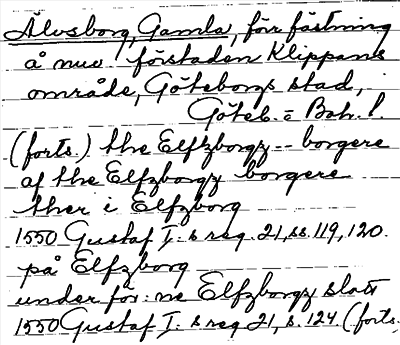 Älvsborg, Gamla, förr fästning
å nuv. förstaden Klippans
område, Göteborgs stad,
Göteb. o. Boh. l.
(forts.) the Elfzborgz -- borgere
af the Elfzborgz borgere
ther i Elfzborg
1550 Gustaf I:s reg. 21, ss. 119, 120.
på Elfzborg
under för:ne Elfzborgz slott
1550 Gustaf I:s reg 21, s. 124 (forts.